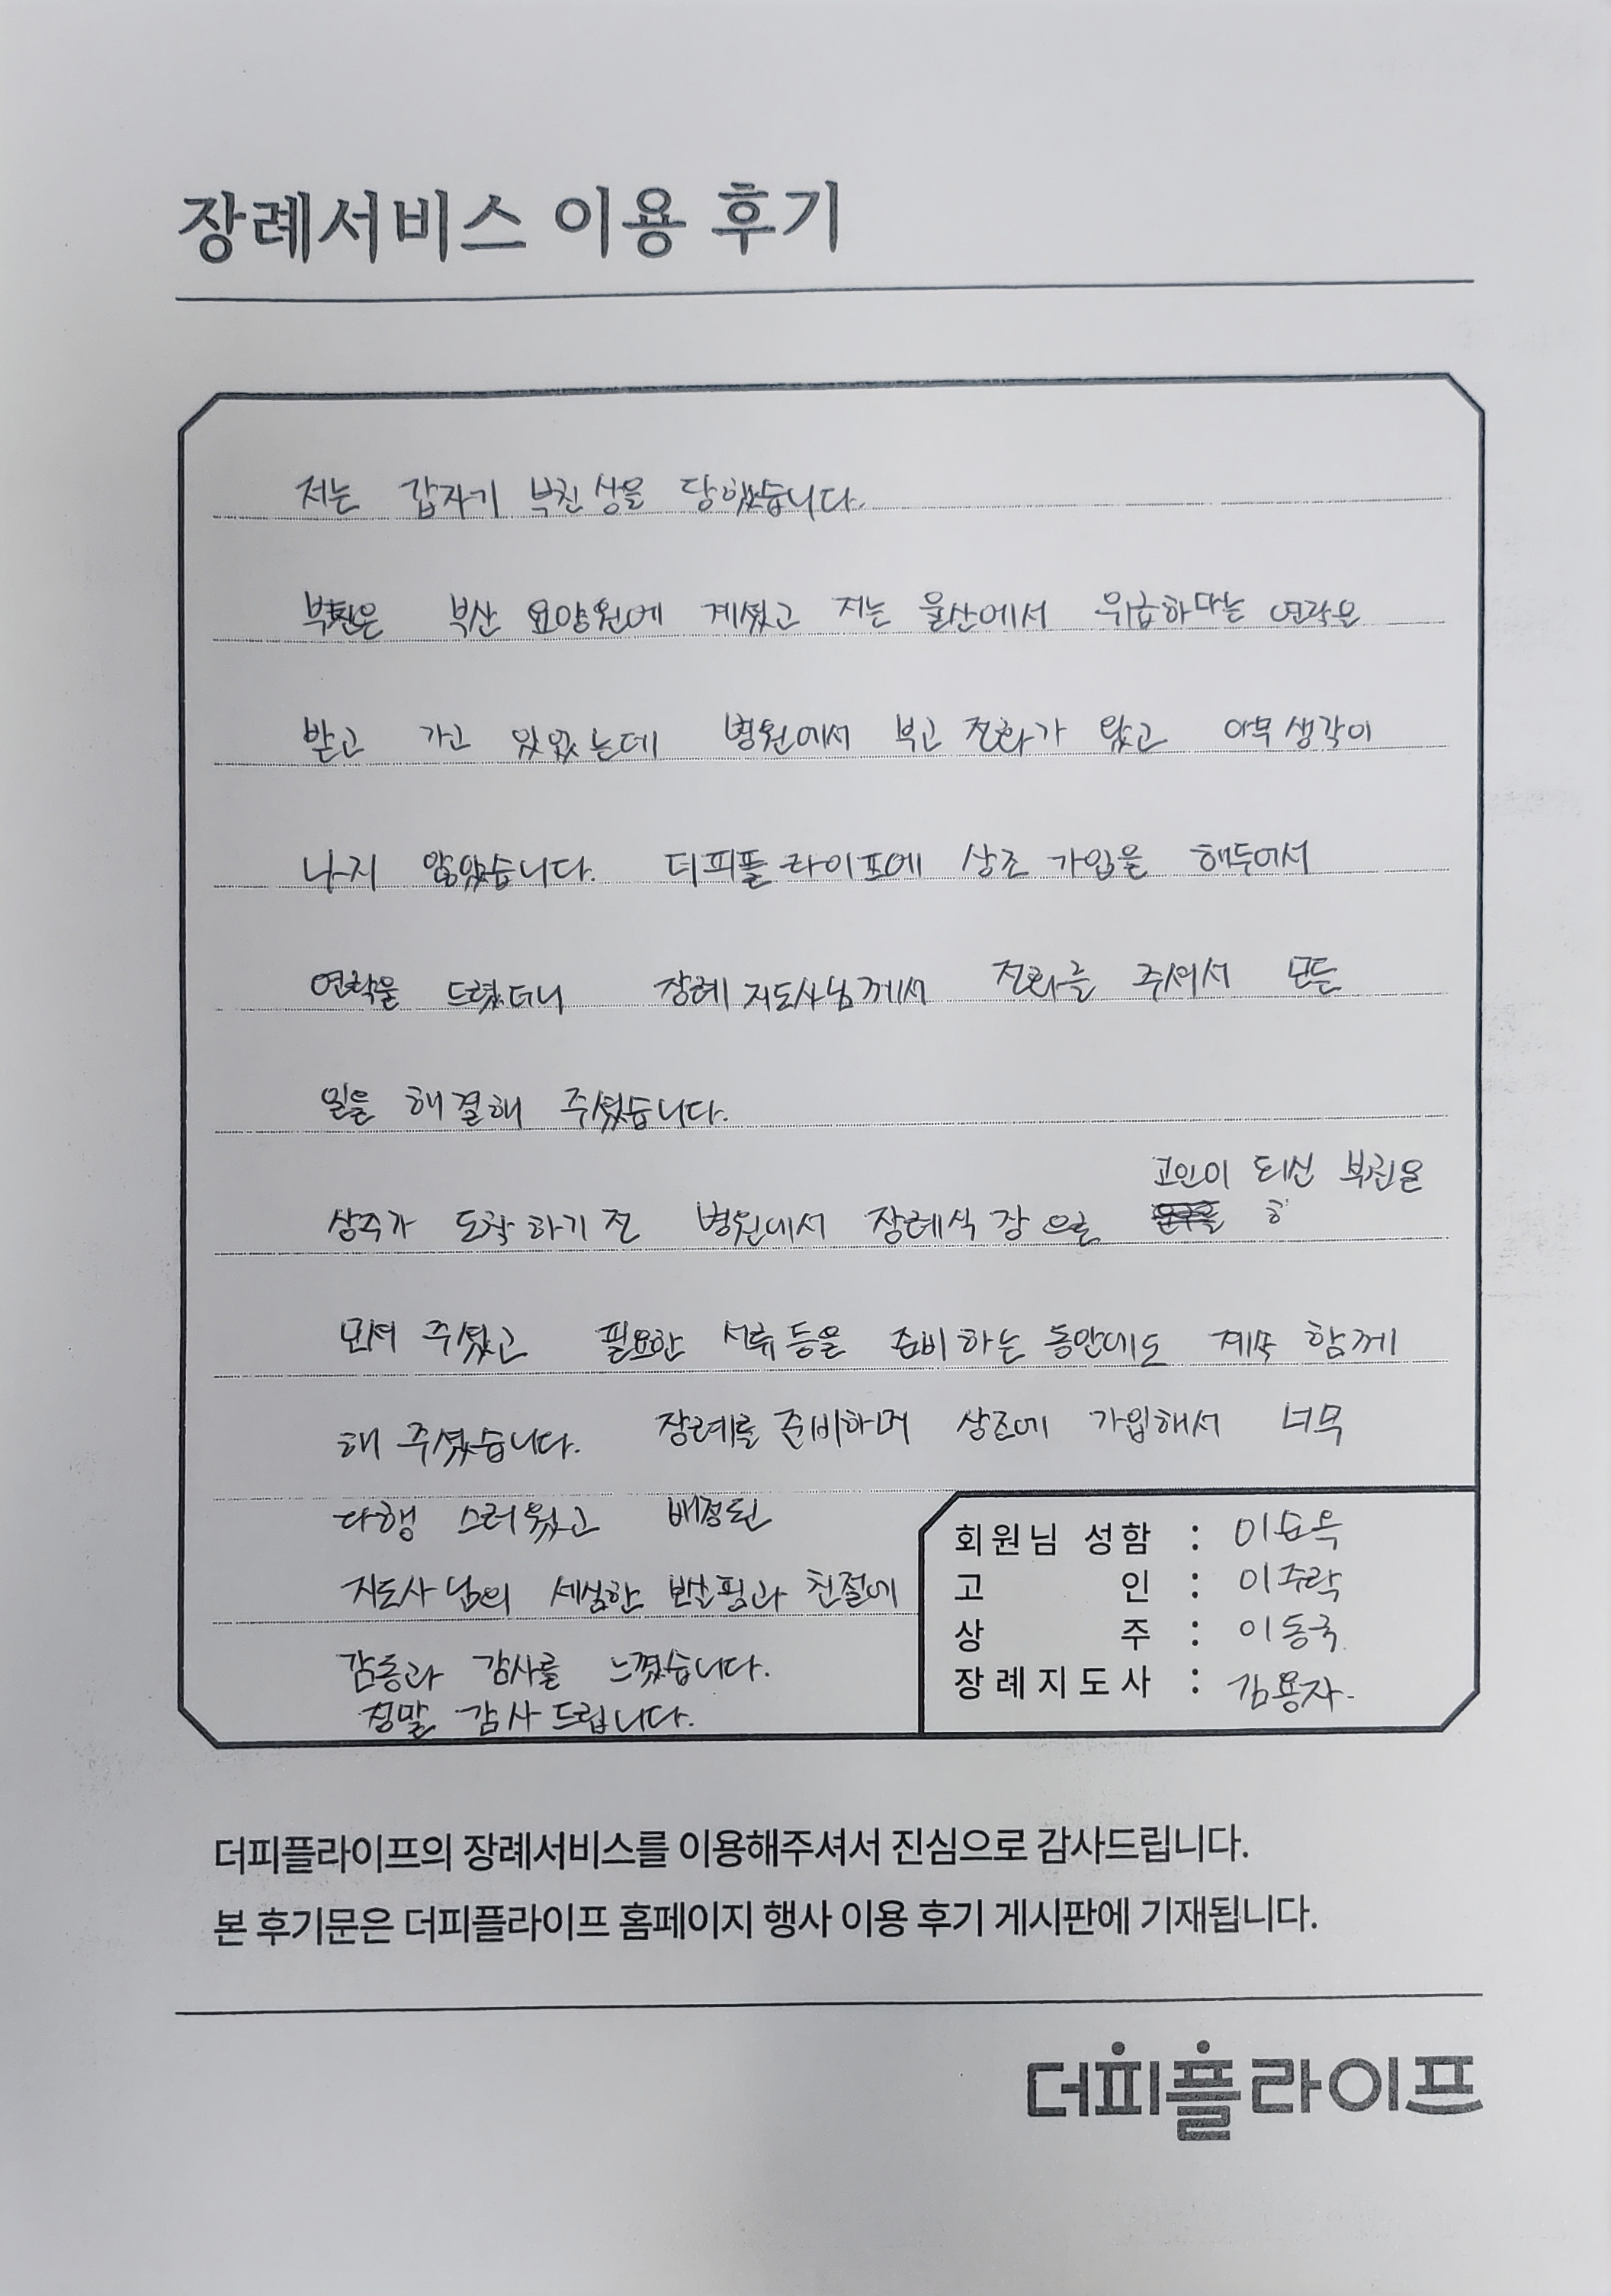 장례서비스 이용 후기
저는 갑자기 부친상을 당했습니다.
부친은 부산 요양원에 계셨고 저는 울산에서 위급하다는 연락을
받고 가고 있었는데 병원에서 부고 전화가 왔고 아무 생각이
나지 않았습니다. 더피플라이프에 상조 가입을 해두어서
연락을 드렸더니 장례지도사님께서 전화를 주셔서 모든
일을 해결해 주셨습니다.
고인이 되신 부친을
상주가 도착하기 전 병원에서 장례식장으로
모셔 주셨고 필요한 서류 등을 준비하는 동안에도 계속 함께
해 주셨습니다. 장례를 준비하며 상조에 가입해서 너무
다행 스러웠고 배정된
지도사님의 세심한 보살핌과 친절에
감동과 감사를 느꼈습니다.
정말 감사드립니다.
회원님 성함 :
고 인 : 이주락
상 주 : 이동국
장례지도사 : 김용자.
더피플라이프의 장례서비스를 이용해주셔서 진심으로 감사드립니다.
본 후기문은 더피플라이프 홈페이지 행사 이용 후기 게시판에 기재됩니다.
더피플라이프